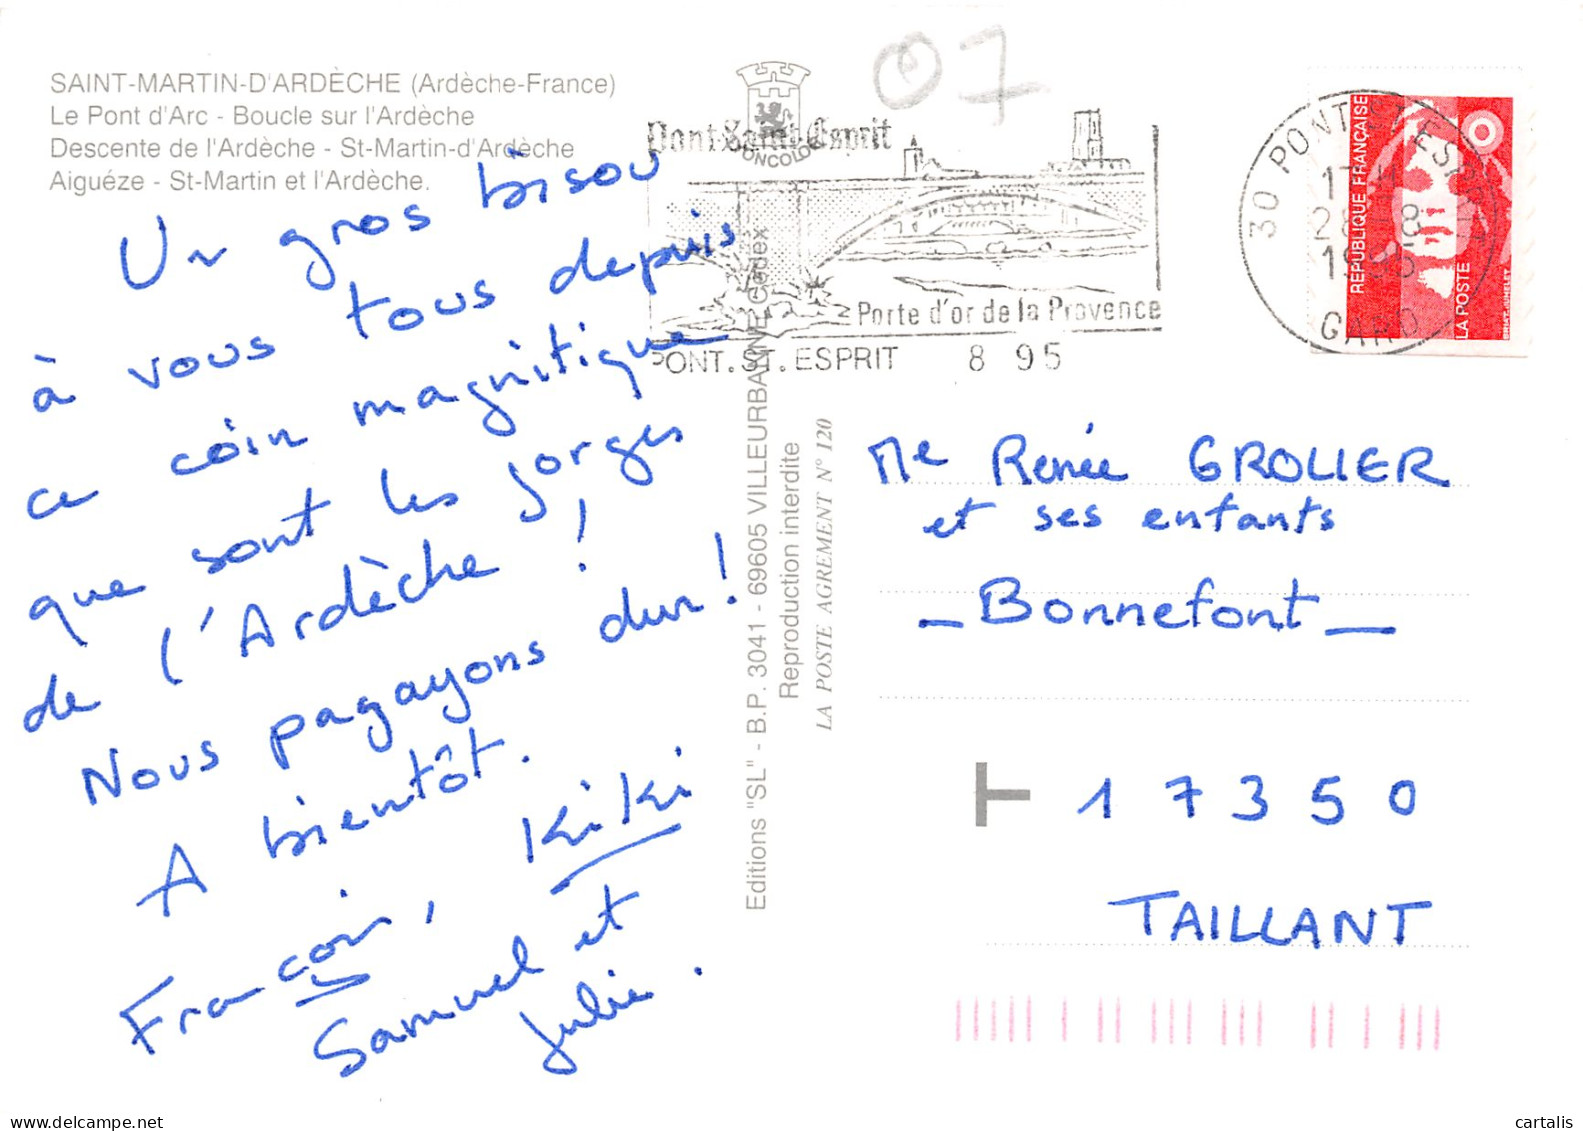 SAINT-MARTIN-D'ARDÈCHE (Ardèche-France)
Le Pont d'Arc - Boucle sur l'Ardèche
Descente de l'Ardèche - St-Martin-d'Ardèche
Aiguéze - St-Martin et l'Ardèche.
Un gros bisou
à vous tous depuis
ce coin magnifique
que sont les gorges
de l'Ardèche !
Nous pagayons dur !
A bientôt.
François, Kiki
Samuel et
Julie.
Editions "SL" - B.P. 3041 - 69605 VILLEURBANNE Cedex
Reproduction interdite
LA POSTE AGREMENT N° 120
07
Pont-Saint-Esprit
Porte d'or de la Provence
PONT. ST. ESPRIT 8 95
30 PONT ST ESPRIT
GARD
RÉPUBLIQUE FRANÇAISE
LA POSTE
BRIAT-JUMELET
Me Renée GROLIER
et ses enfants
- Bonnefont -
T 17350
TAILLANT
delcampe.net
cartalis